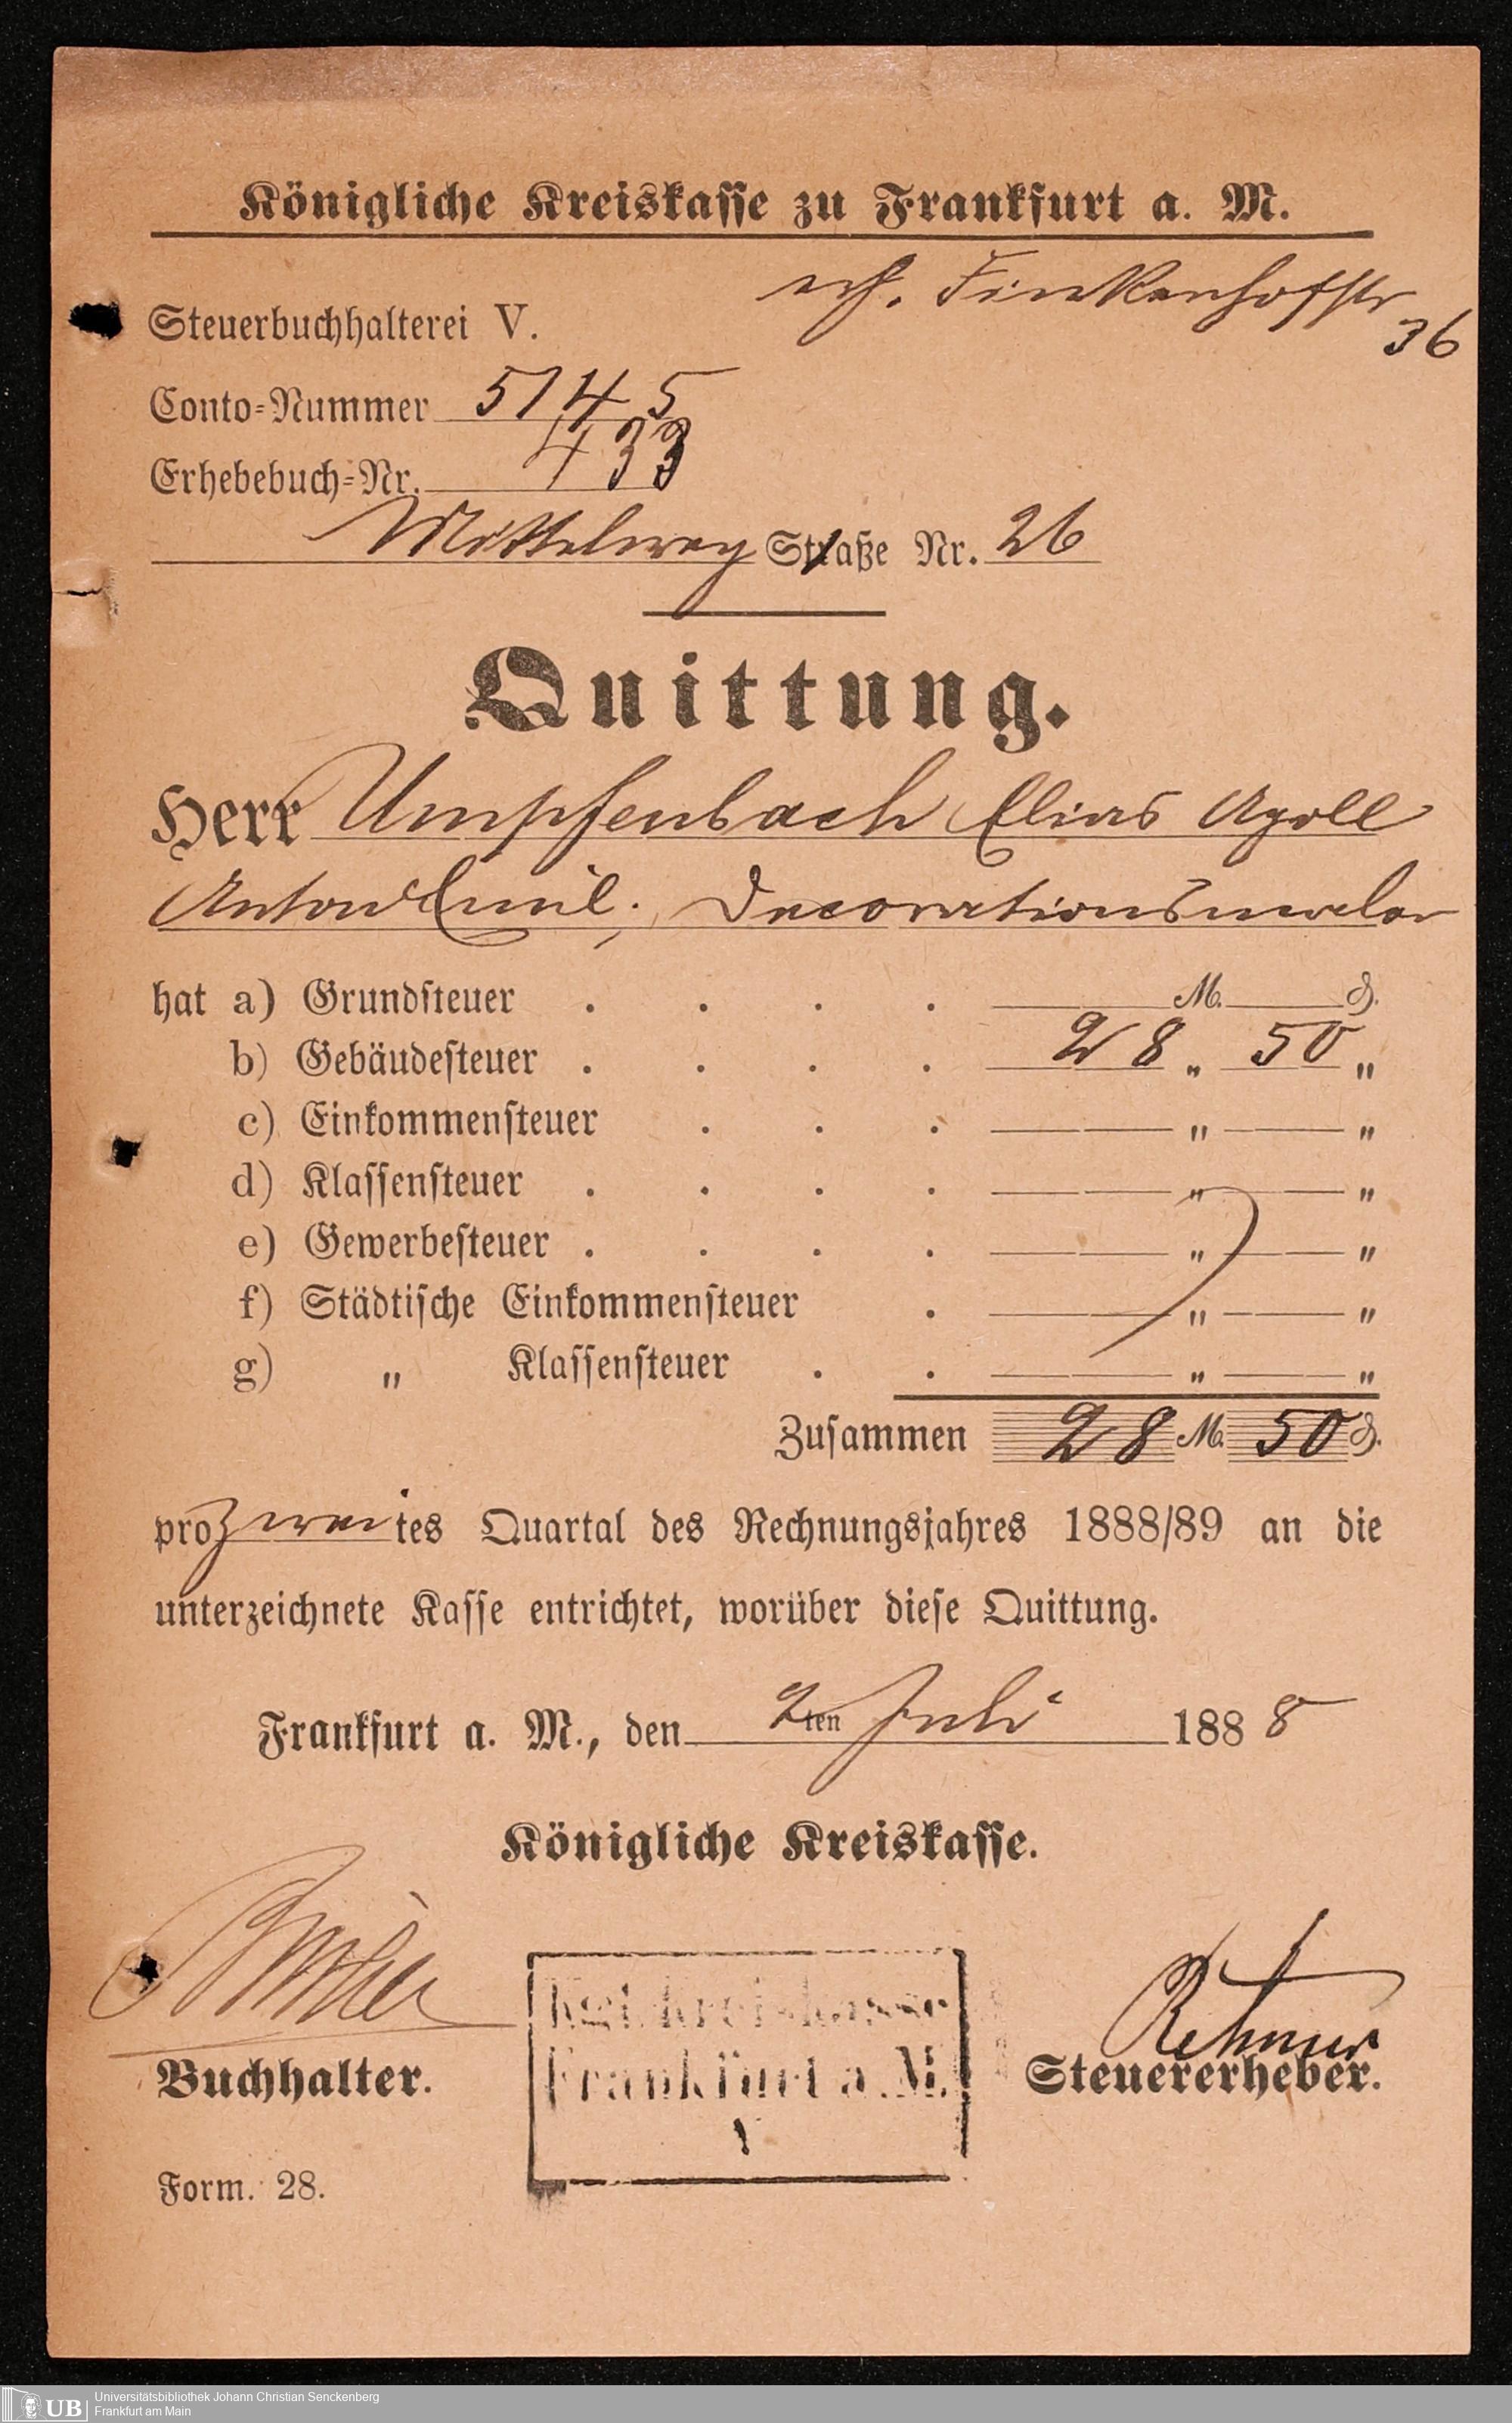 Königliche Kreiskasse zu Frankfurt a. M.
Finkenhofstr
36
Steuerbuchhalterei V.
Conto-Nummer 5145
Erhebebuch-Nr. 433
Mittelweg Straße Nr. 26
Quittung.
Herr Umpfenbach Elias Apoll
Anton Emil, Decorationsmaler
hat a) Grundsteuer . . . . M. ₰.
b) Gebäudesteuer . . . . 28 „ 50 „
c) Einkommensteuer . . . „ „
d) Klassensteuer . . . . „ „
e) Gewerbesteuer . . . . „ „
f) Städtische Einkommensteuer . „ „
g) „ Klassensteuer . . „ „
Zusammen 28 M. 50 ₰.
pro zweites Quartal des Rechnungsjahres 1888/89 an die
unterzeichnete Kasse entrichtet, worüber diese Quittung.
Frankfurt a. M., den 2ten Juli 1888
Königliche Kreiskasse.
Buchhalter.
Kgl. Kreiskasse
Frankfurt a. M.
Steuererheber.
Form. 28.
UB Universitätsbibliothek Johann Christian Senckenberg
Frankfurt am Main